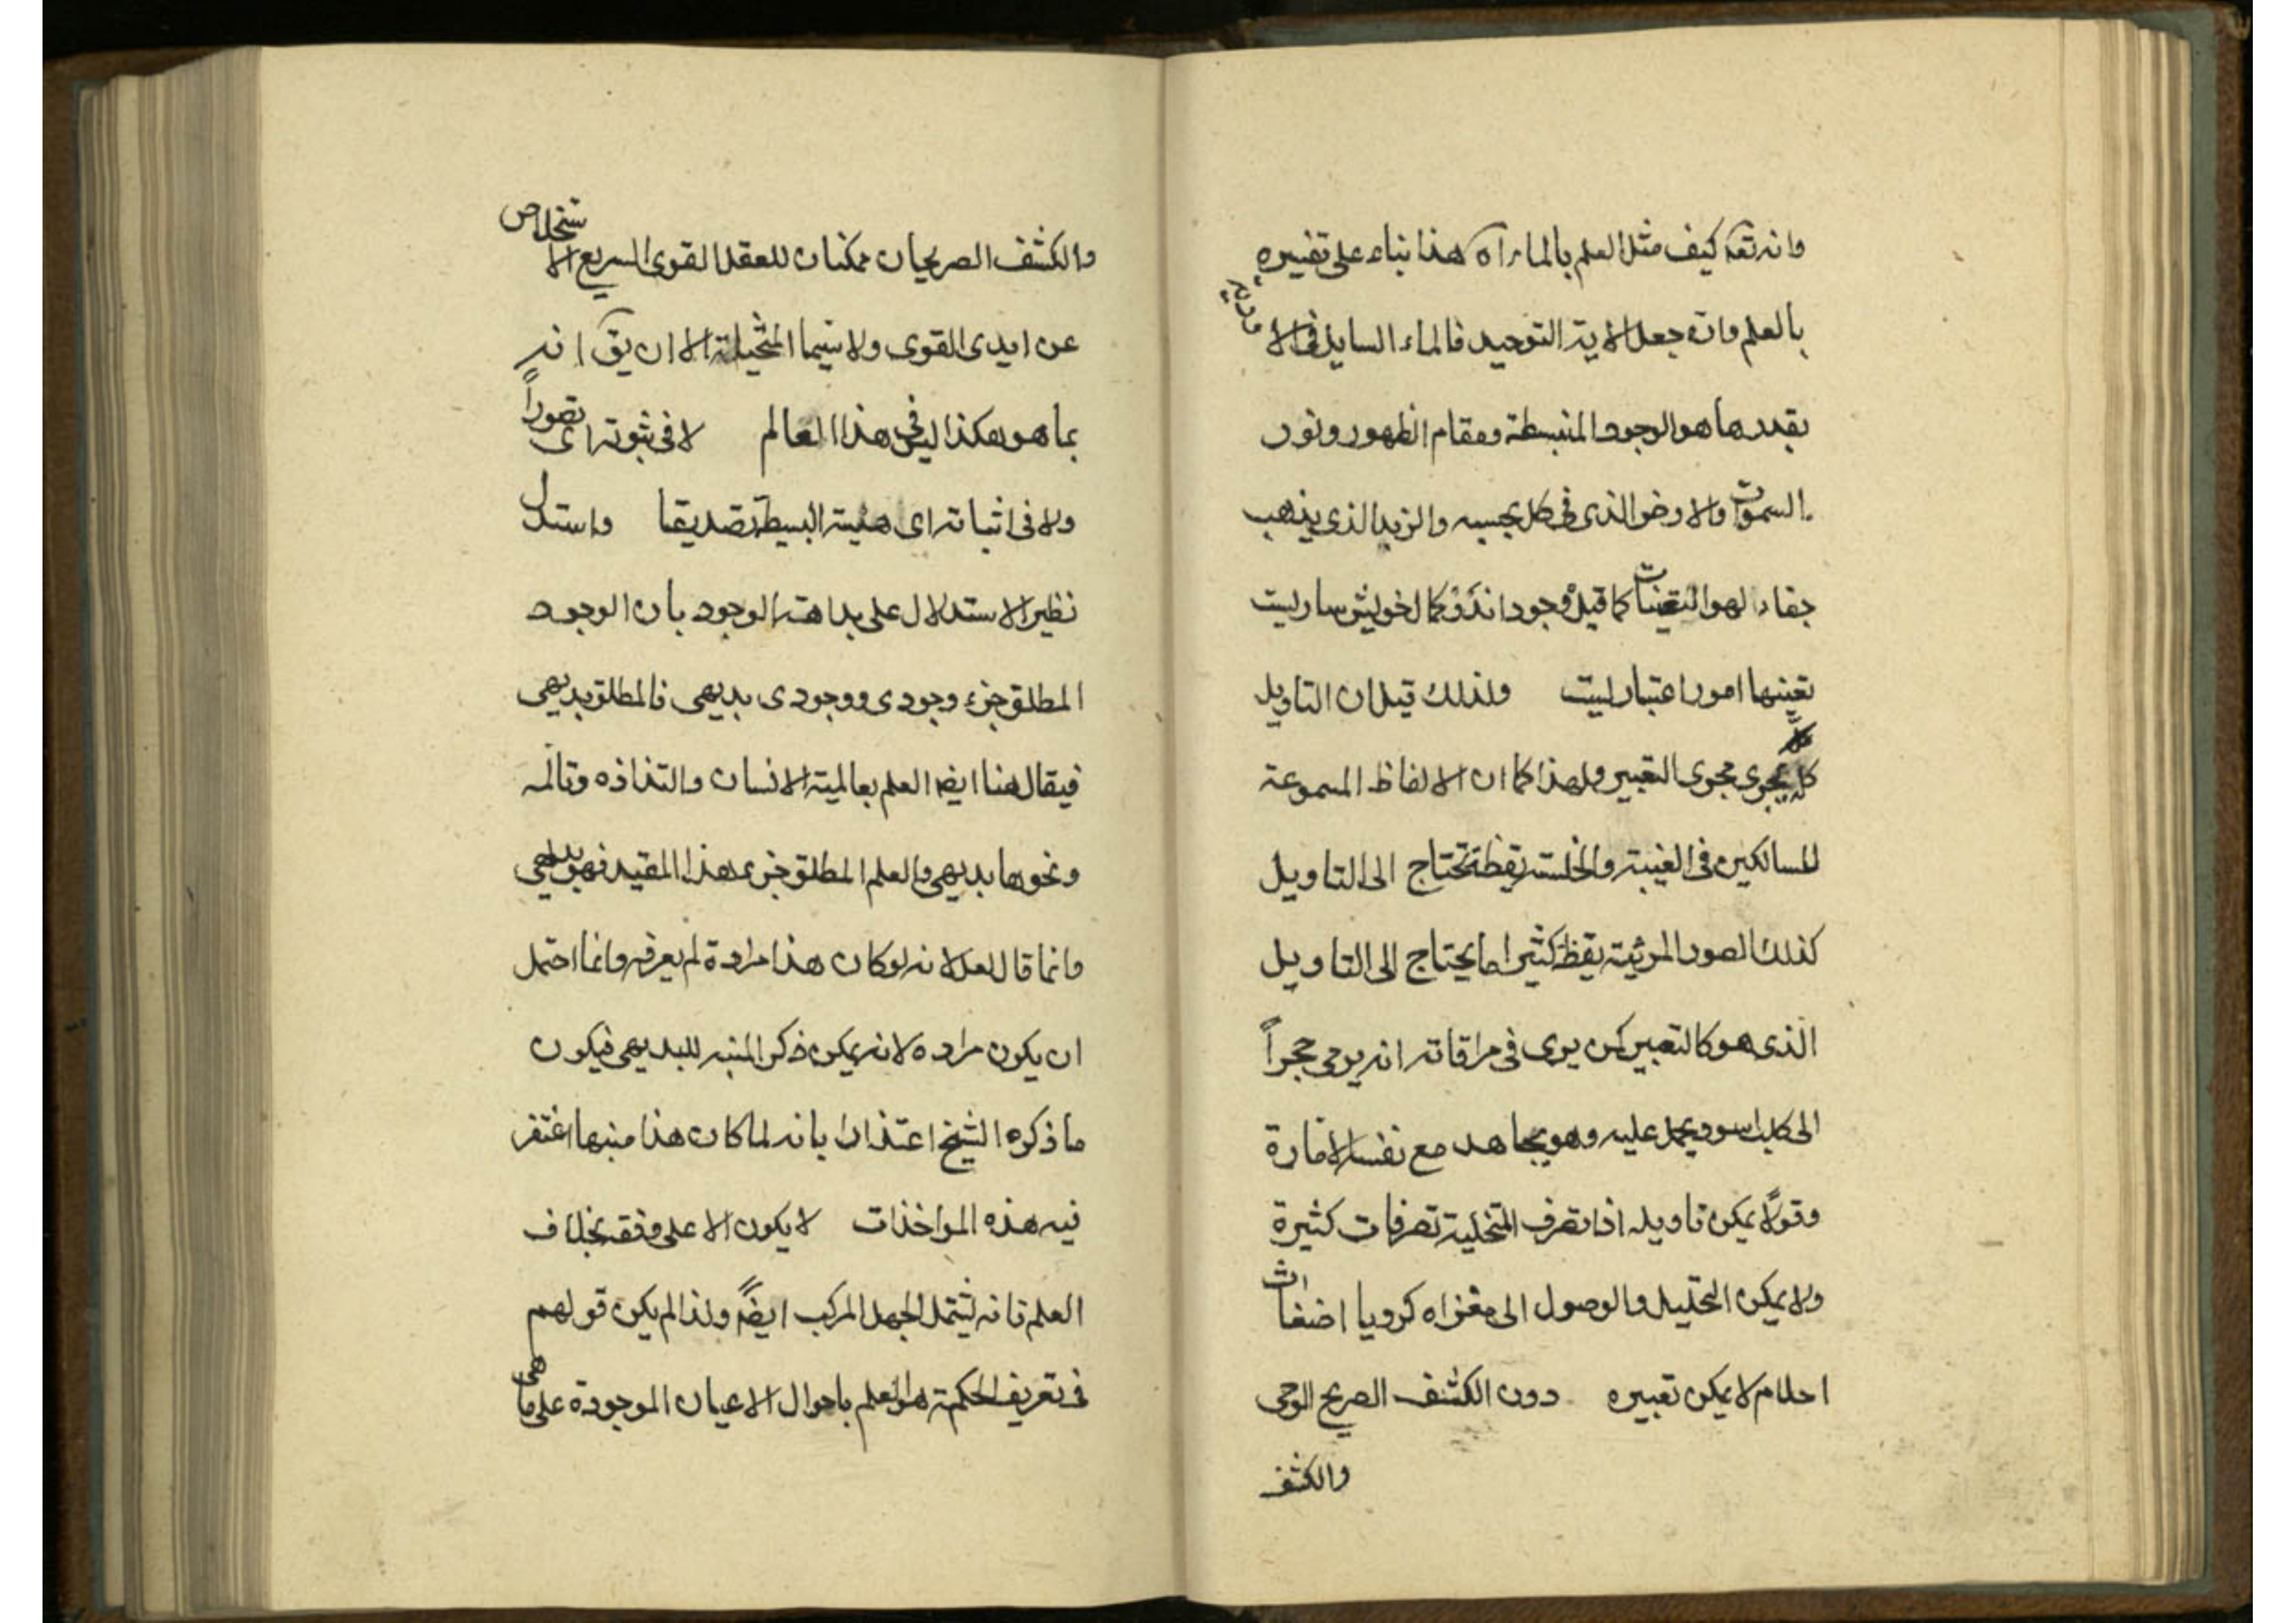 وانه تعالى كيف مثل العلم بالماء اه هذا بناء على تفسيره
بالعلم وان جعل الاية التوحيد فالماء السايل فى الاودية
بقدرها هو الوجود المنبسطة ومقام الظهور ونور
السموات والارض الذى فى كل بحسبه والزبد الذى يذهب
جفاء لهو التعينات كما قيل وجود اندر كمال خويش ساريست
تعينها امور اعتباريست ولذلك قيل ان التاويل
كله يجرى مجرى التعبير ولهذا كما ان الالفاظ المسموعة
للسالكين فى الغيبة والخلسة يقظة تحتاج الى التاويل
كذلك الصور المرئية يقظة كثيرا ما يحتاج الى التاويل
الذى هو كالتعبير كمن يرى فى مراقاته انه يرمى حجراً
الى كلب اسود يحمل عليه وهو يجاهد مع نفسه الامارة
وقولا يمكن تاويله اذا تصرف المتخيلة تصرفات كثيرة
ولا يمكن التحليل والوصول الى مغزاه كرويا اضغاث
احلام لا يمكن تعبيره دون الكشف الصريح الوحى
والكشف
والكشف الصريحان ممكنان للعقل القوى السريع الاستخلاص
عن ايدى القوى ولا سيما المتخيلة الا ان يق انه
بما هو هكذا ليس فى هذا العالم لا فى ثبوته اى تصوراً
ولا فى اثباته اى هلية البسيطة تصديقا واستدل
نظير الاستدلال على بداهة الوجود بان الوجود
المطلق جزء وجودى ووجودى بديهى فالمطلق بديهى
فيقال هنا ايضا العلم بعالمية الانسان والتذاذه وتالمه
ونحوها بديهى والعلم المطلق جزء هذا المقيد فهو بديهى
وانما قال لعل لانه لو كان هذا مراده لم يعرفه وانما احتمل
ان يكون مراده لانه يمكن ذكر المنبه للبديهى فيكون
ما ذكره الشيخ اعتذارا بانه لما كان هذا منبها اغتفر
فيه هذه المواخذات لا يكون الا على وفقه بخلاف
العلم فانه يشتمل الجهل المركب ايضاً ولذا لم يكن قولهم
فى تعريف الحكمة هو العلم باحوال الاعيان الموجودة على ما هى